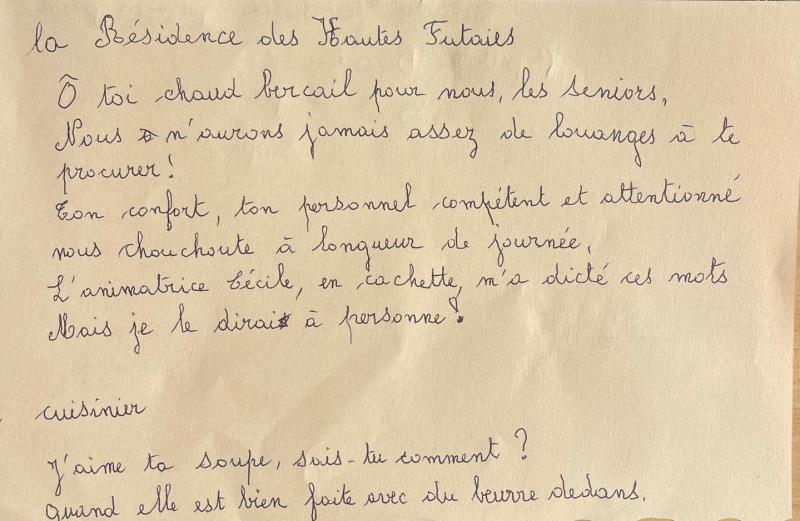 la Résidence des Hautes Futaies
Ô toi chaud bercail pour nous, les seniors,
Nous n'aurons jamais assez de louanges à te
procurer!
Ton confort, ton personnel compétent et attentionné
nous chouchoute à longueur de journée,
L'animatrice Cécile, en cachette, m'a dicté ces mots
Mais je le dirai à personne!
cuisinier
J'aime ta soupe, sais-tu comment ?
Quand elle est bien faite avec du beurre dedans.